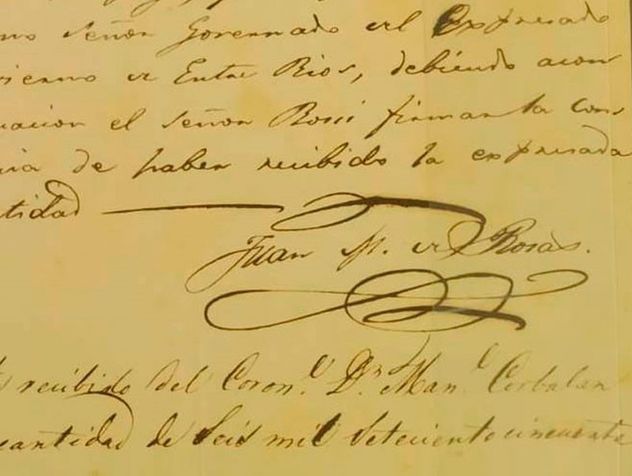 mo señor Governado del Expresado
vierno de Entre Rios, debiendo acon
uacion el señor Rossi firmar la cons
cia de haber recibido la expresada
ntidad
Juan M. de Rosas.
recibido del Coron.l D.n Man.l Corbalan
cantidad de Seis mil setecientos cincuenta